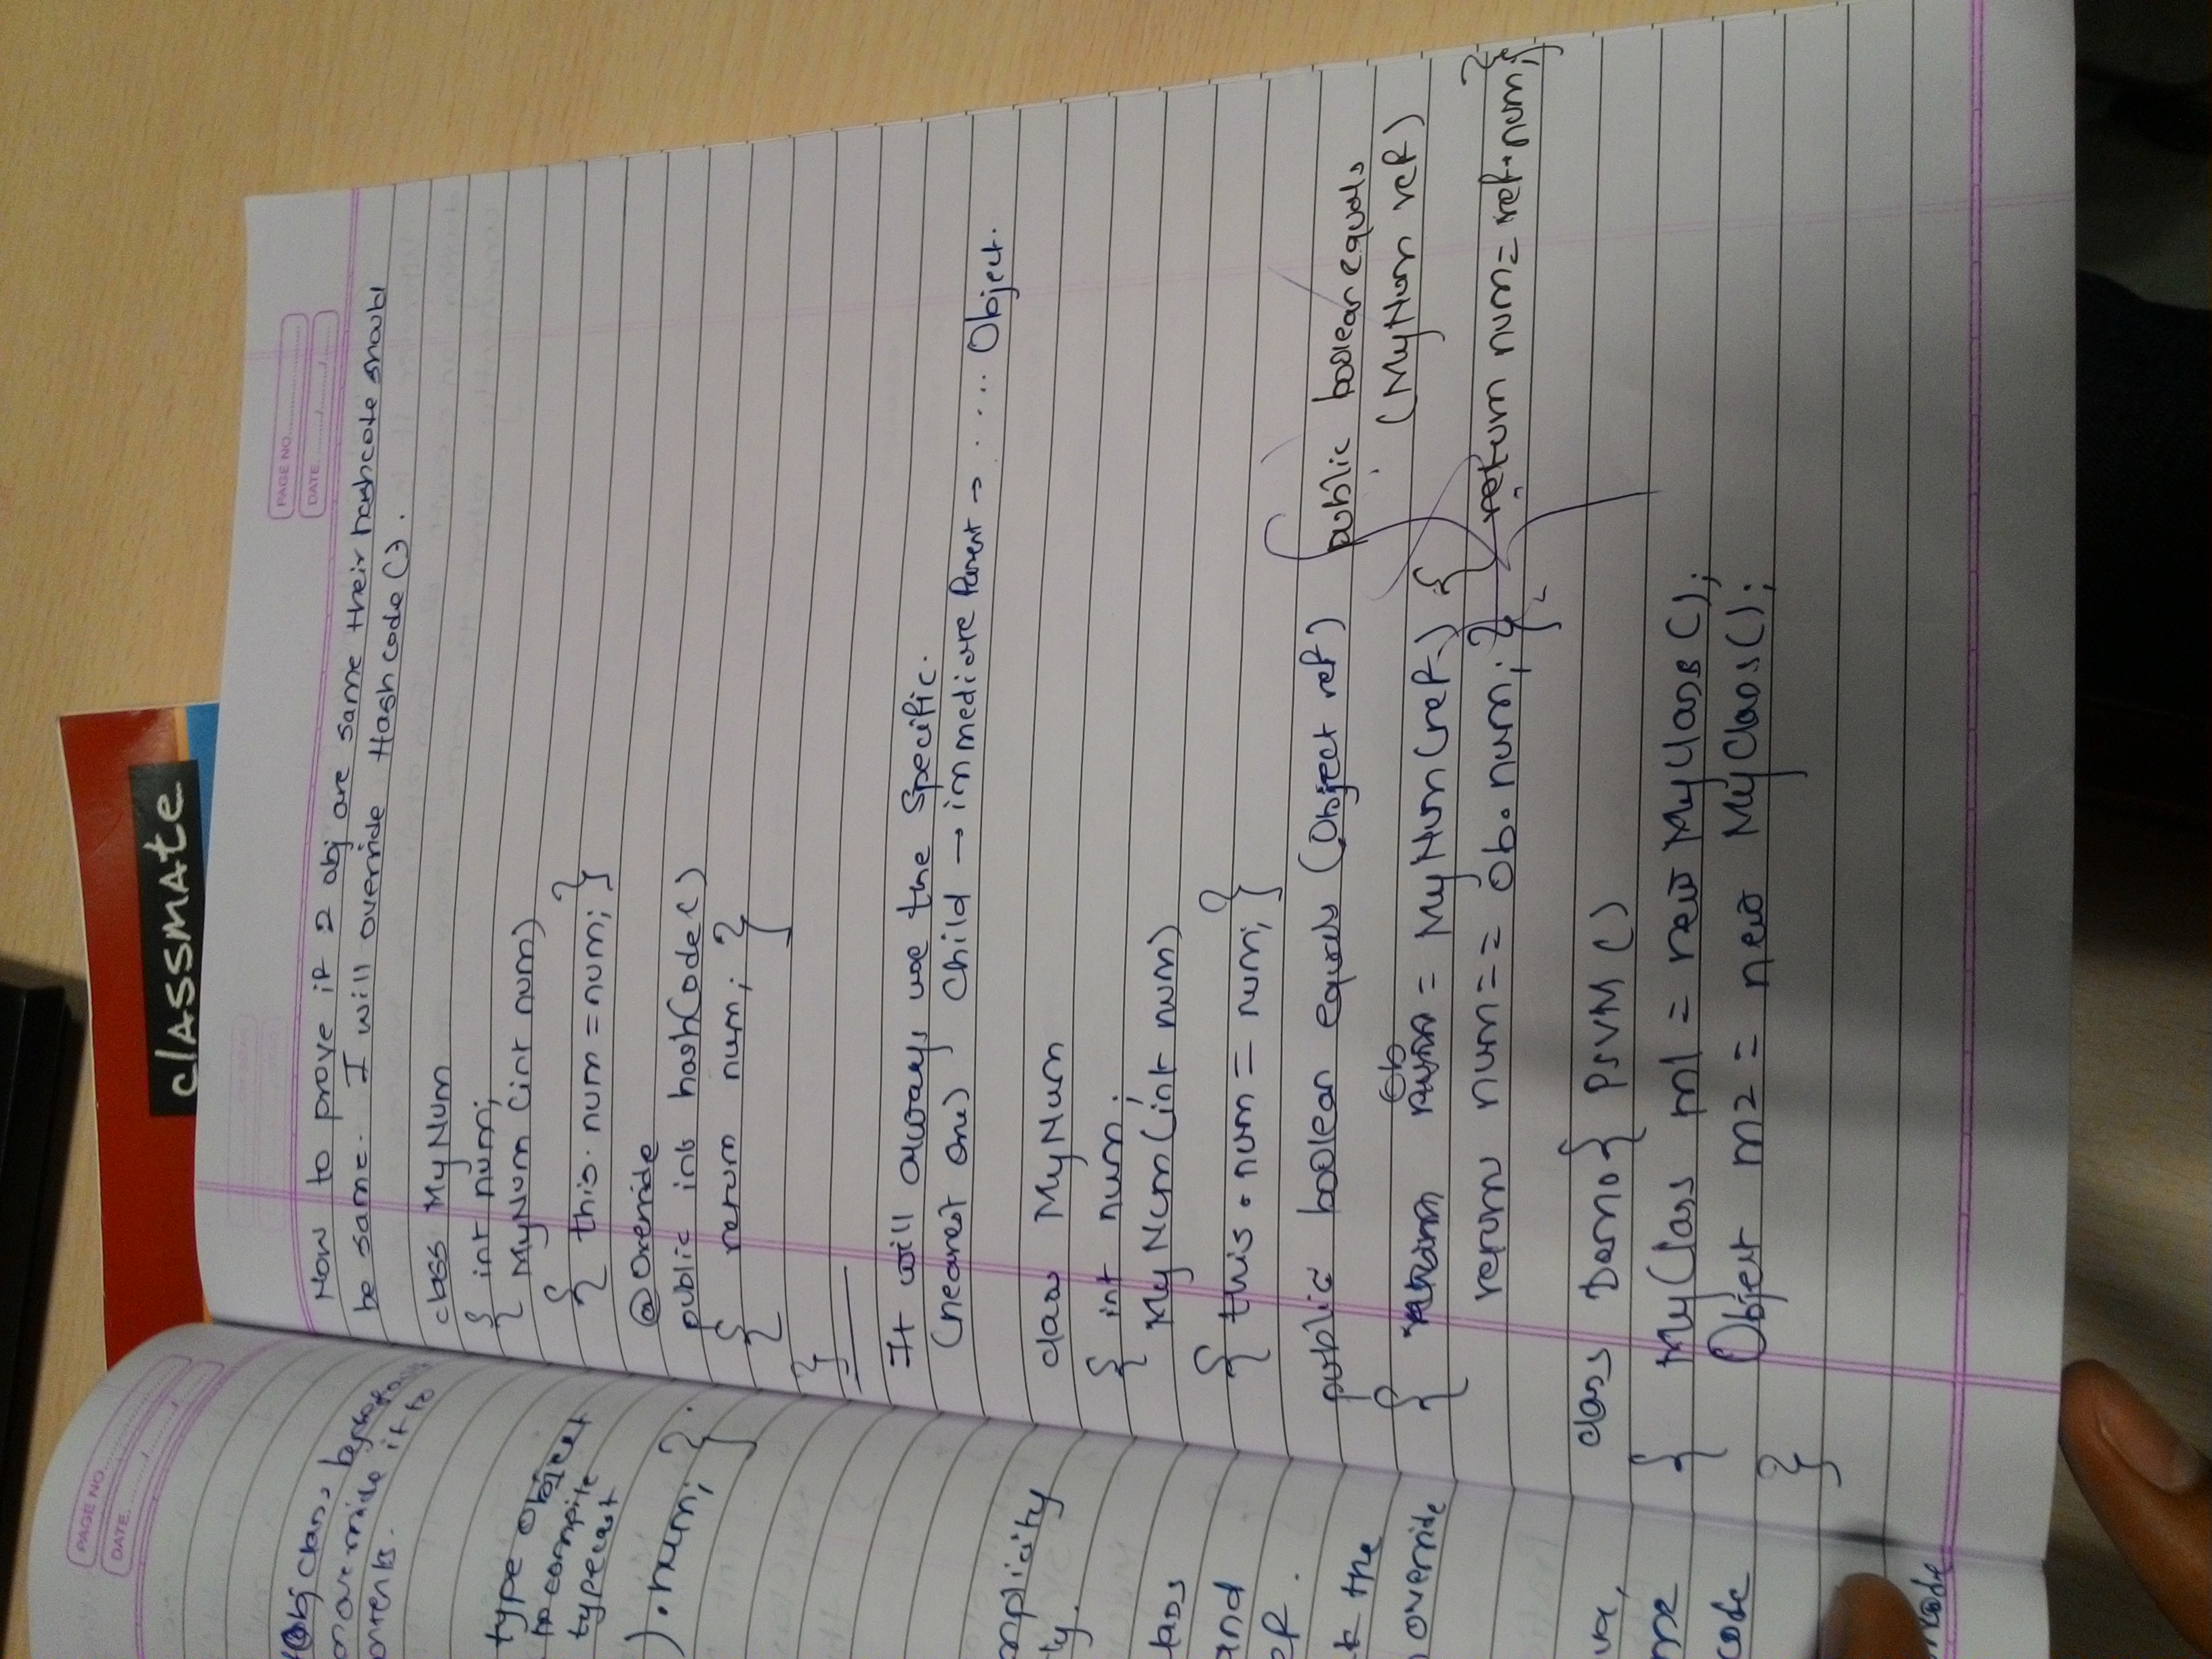 PAGE NO.
DATE.
Obj class,
override it to
type object
to compile
typecast
).num; }
mplicity
ty.
and
ef.
the
override
code
classmate
PAGE NO.
DATE.
Now to prove if 2 obj are same their hashcode should
be same. I will override Hashcode().
class MyNum
{ int num;
MyNum (int num)
{ this.num = num; }
@Override
public int hashCode()
{ return num; }
}
It will always use the specific.
(nearest one) Child → immediate Parent → ..... Object.
class MyNum
{ int num;
MyNum(int num)
{ this.num = num; }
public boolean equals (Object ref)
{ ob = MyNum(ref)
return num == ob.num; }
public boolean equals
(MyNum ref)
{ return num = ref.num; }
class Demo { PSVM ()
{ MyClass m1 = new MyClass();
Object m2 = new MyClass();
}